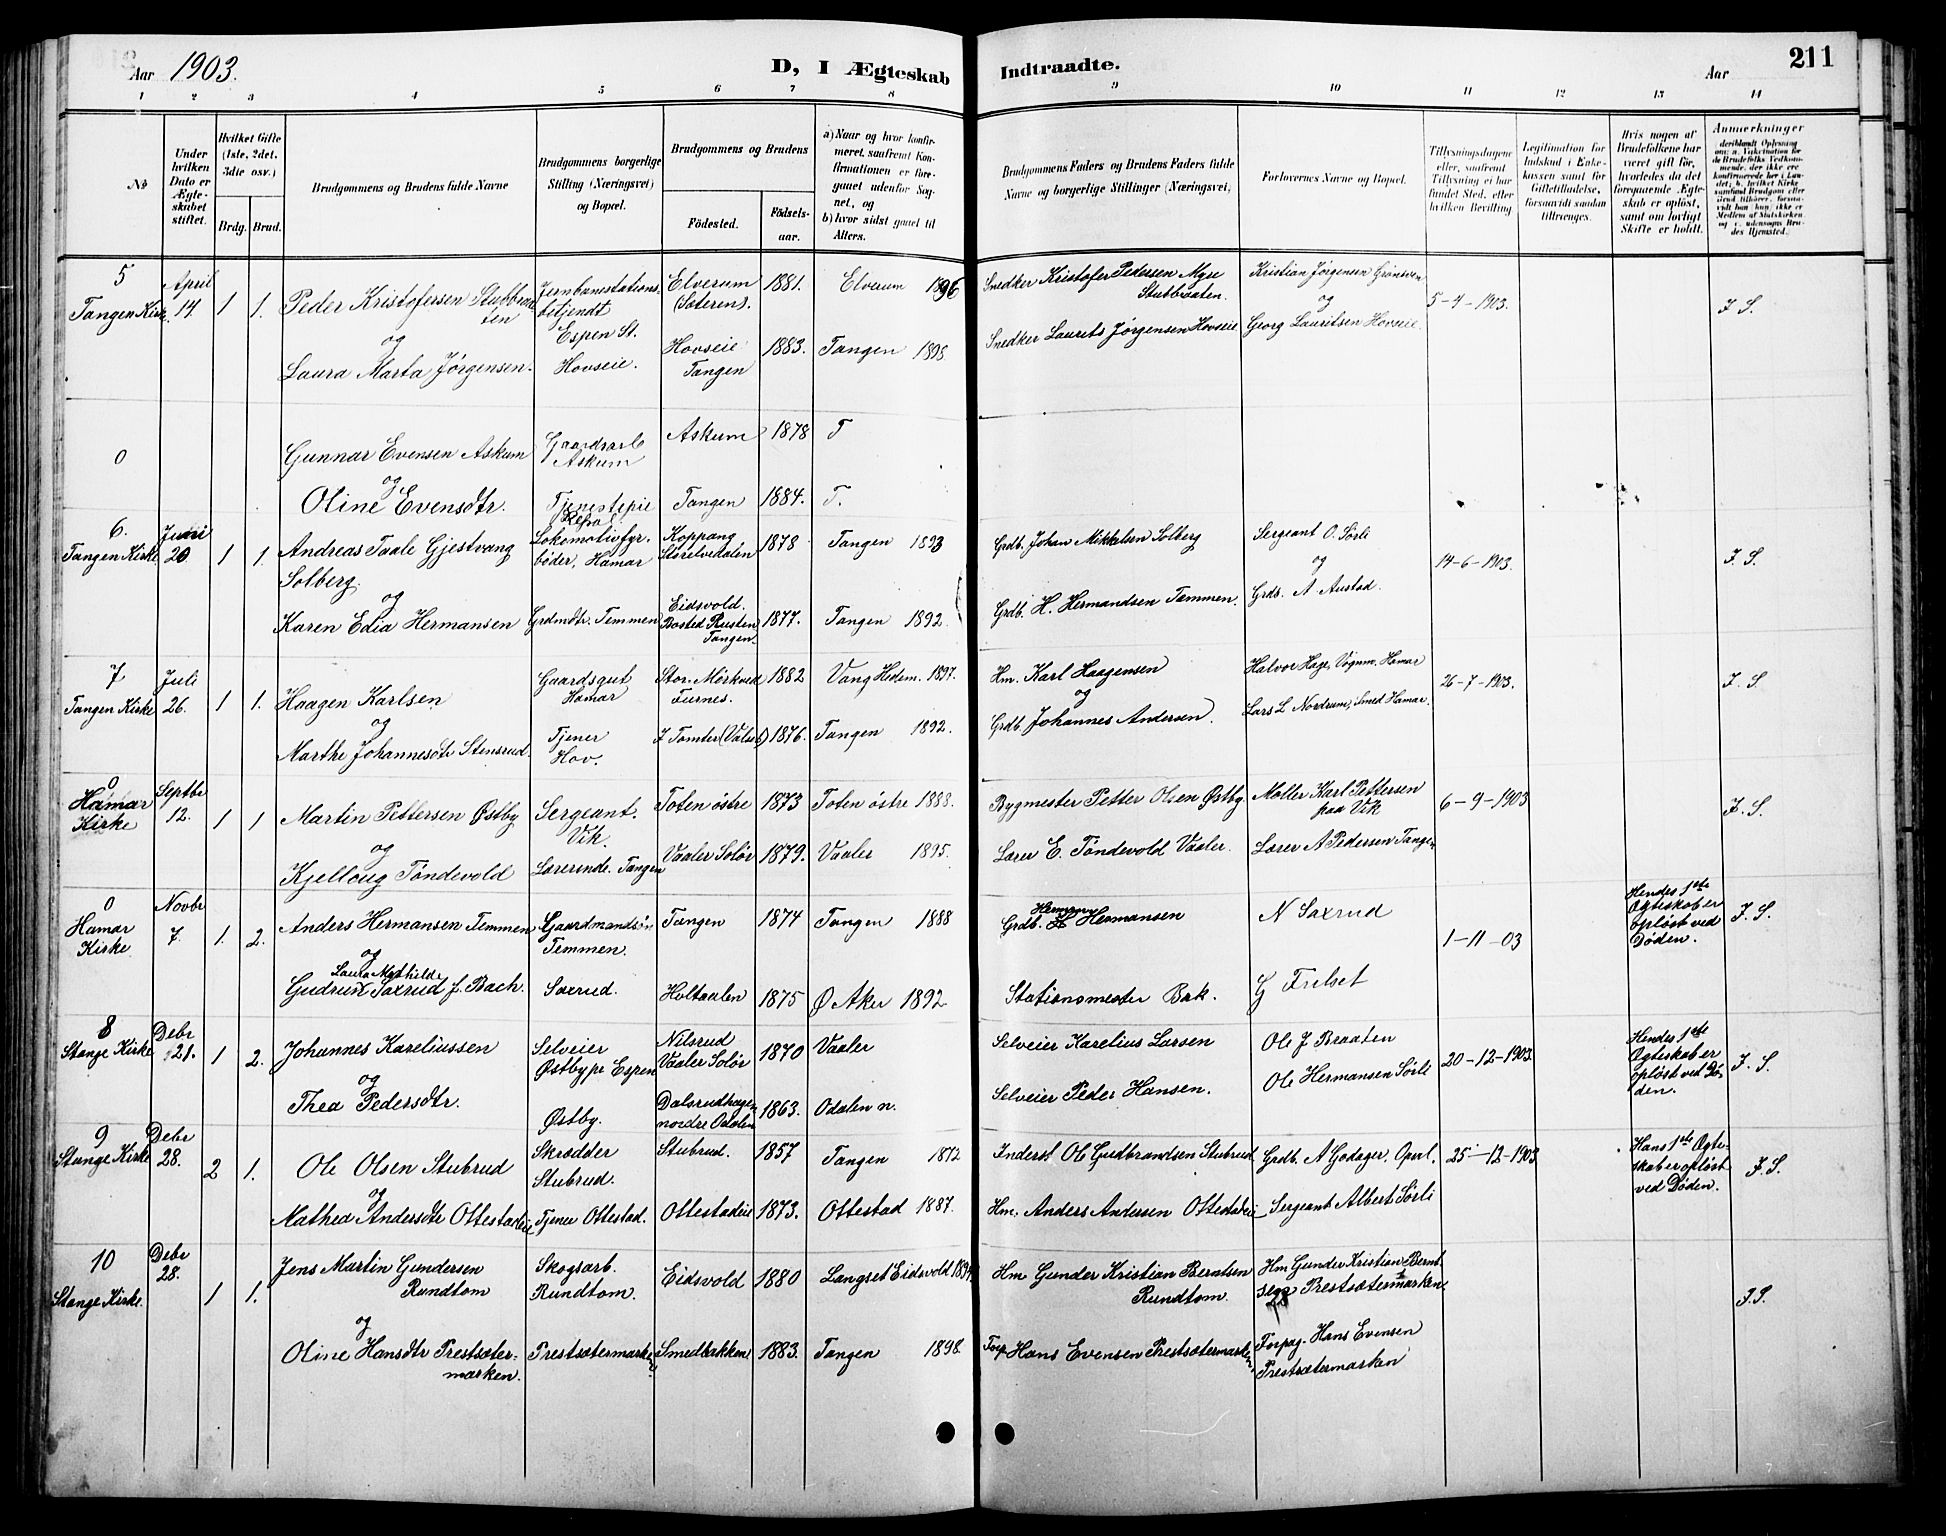 Aar 1903.
D, I Ægteskab Indtraadte.
Aar 211
1 2 3 4 5 6 7 8 9 10 11 12 13 14
No
Under hvilken Dato er Ægteskabet stiftet.
Hvilket Gifte (1ste, 2det, 3die osv.)
Brdg. Brud.
Brudgommens og Brudens fulde Navne
Brudgommens borgerlige Stilling (Næringsvei) og Bopæl.
Brudgommens og Brudens
Fødested.
Fødselsaar.
a) Naar og hvor konfirmeret, saafremt Konfirmationen er foregaaet udenfor Sognet, og
b) hvor sidst gaaet til Alters.
Brudgommens Faders og Brudens Faders fulde Navne og borgerlige Stillinger (Næringsvei)
Forlovernes Navne og Bopæl.
Tillysningsdagene eller, saafremt Tillysning ei har fundet Sted, efter hvilken Bevilling
Legitimation for Indskud i Enkekassen samt for Giftetilladelse, forsaavidt saadan tiltrænges.
Hvis nogen af Brudefolkene har været gift før, hvorledes da det foregaaende Ægteskab er opløst, samt om lovligt Skifte er holdt.
Anmerkninger
5 Tangen Kirke
April 14.
1 1.
Peder Kristofersen Stubbraaten
og
Laura Marta Jørgensen.
Jernbanestationsbetjendt
Espen St.
Hovseie.
Elverum (Sæteren).
Hovseie Tangen
1881.
1883.
Elverum 1896
Tangen 1898
Snedker Kristofer Pedersen Myse Stubbraaten.
Snedker Laurits Jørgensen Hovseie
Kristian Jørgensen Grönsveen
og
Georg Lauritsen Hovseie.
5-4-1903.
J. S.
0
Gunnar Evensen Askum
og
Oline Evensdtr.
Gaardsarb Askum
Tjenestepie
Askum
Tangen
1878
1884.
T
T.
6. Tangen Kirke
Juni 20
1 1.
Andreas Taale Gjestvang Solberg.
og
Karen Edia Hermansen
Lokomotivfyrbøder, Hamar
Grdmdtr. Temmen
Koppang Storelvedalen
Eidsvold. Bosted Rusten Tangen.
1878
1877.
Tangen 1893
Tangen 1892
Grdb. Johan Mikkelsen Solberg
Grdb. H. Hermandsen Temmen.
Sergeant O. Sörli
og
Grdb. A Austad.
14-6-1903.
J. S.
7 Tangen Kirke
Juli 26.
1 1.
Haagen Karlsen
og
Marthe Johannesdtr Stensrud.
Gaardsgut Hamar
Tjener Hov.
Stor-Mörkved Furnes.
J Tomter (Valset)
1882
1876.
Vang Hedem. 1897.
Tangen 1892.
Hm. Karl Haagensen
og
Grdb. Johannes Andersen.
Halvor Hage, Vognm. Hamar
Lars L Nordrum, Smed Hamar.
26-7-1903.
J. S.
0 Hamar Kirke
Septbr 12.
1 1
Martin Pettersen Østby
og
Kjellaug Töndevold
Sergeant. Vik.
Lærerinde. Tangen
Toten östre
Vaaler Solör
1873
1879.
Toten östre 1888.
Vaaler 1895.
Bygmester Petter Olsen Østby.
Lærer E. Töndevold Vaaler.
Møller Karl Pettersen paa Vik
Lærer A Pedersen Tangen
6-9-1903
J. S.
0 Hamar Kirke
Novbr 7.
1. 2.
Anders Hermansen Temmen
og
Laura Mathilde
Gudrun Saxrud f. Bach.
Gaardmandsön Temmen.
Saxrud.
Tangen
Holtaalen
1874
1875
Tangen 1888
Ø Aker 1892
Herman
Grdb. H Hermansen
Stationsmester Bak.
N Saxrud
G Frilset
1-11-03
Hendes 1ste Ægteskab er opløst ved Döden.
J. S.
8 Stange Kirke
Debr 21.
1 2.
Johannes Kareliussen
og
Thea Pedersdtr.
Selveier Østbype Espen
Østby.
Nilsrud Vaaler Solör
Dalsrudhagen nordre Odalen
1870
1863.
Vaaler
Odalen n.
Selveier Karelius Larsen
Selveier Peder Hansen.
Ole J Braaten
Ole Hermansen Sörli
20-12-1903
Hendes 1ste Ægteskab er opløst ved Döden.
J. S.
9 Stange Kirke
Debr 28.
2 1.
Ole Olsen Stubrud
og
Mathea Andersdtr Ottestadeie
Skrædder Stubrud.
Tjener Ottestad.
Stubrud.
Ottestadeie
1857
1873.
Tangen 1872
Ottestad 1887.
Inderst Ole Gudbrandsen Stubrud
Hm. Anders Andersen Ottestadeie
Grdb. A Godager, Opsl.
Sergeant Albert Sörli
25-12-1903
Hans 1ste Ægteskab er opløst ved Döden.
J. S.
10 Stange Kirke.
Debr 28.
1 1.
Jens Martin Gundersen Rundtom
og
Oline Hansdtr Prestsætermarken.
Skogsarb. Rundtom.
Prestsætermarken
Eidsvold
Smedbakken
1880
1883.
Langset Eidsvold 1894
Tangen 1898.
Hm Gunder Kristian Berntsen Rundtom.
Forp. Hans Evensen Prestsætermarken
Hm Gunder Kristian Bernt
Prestsætermarken
Forpag. Hans Evensen Prestsætermarken
J. S.